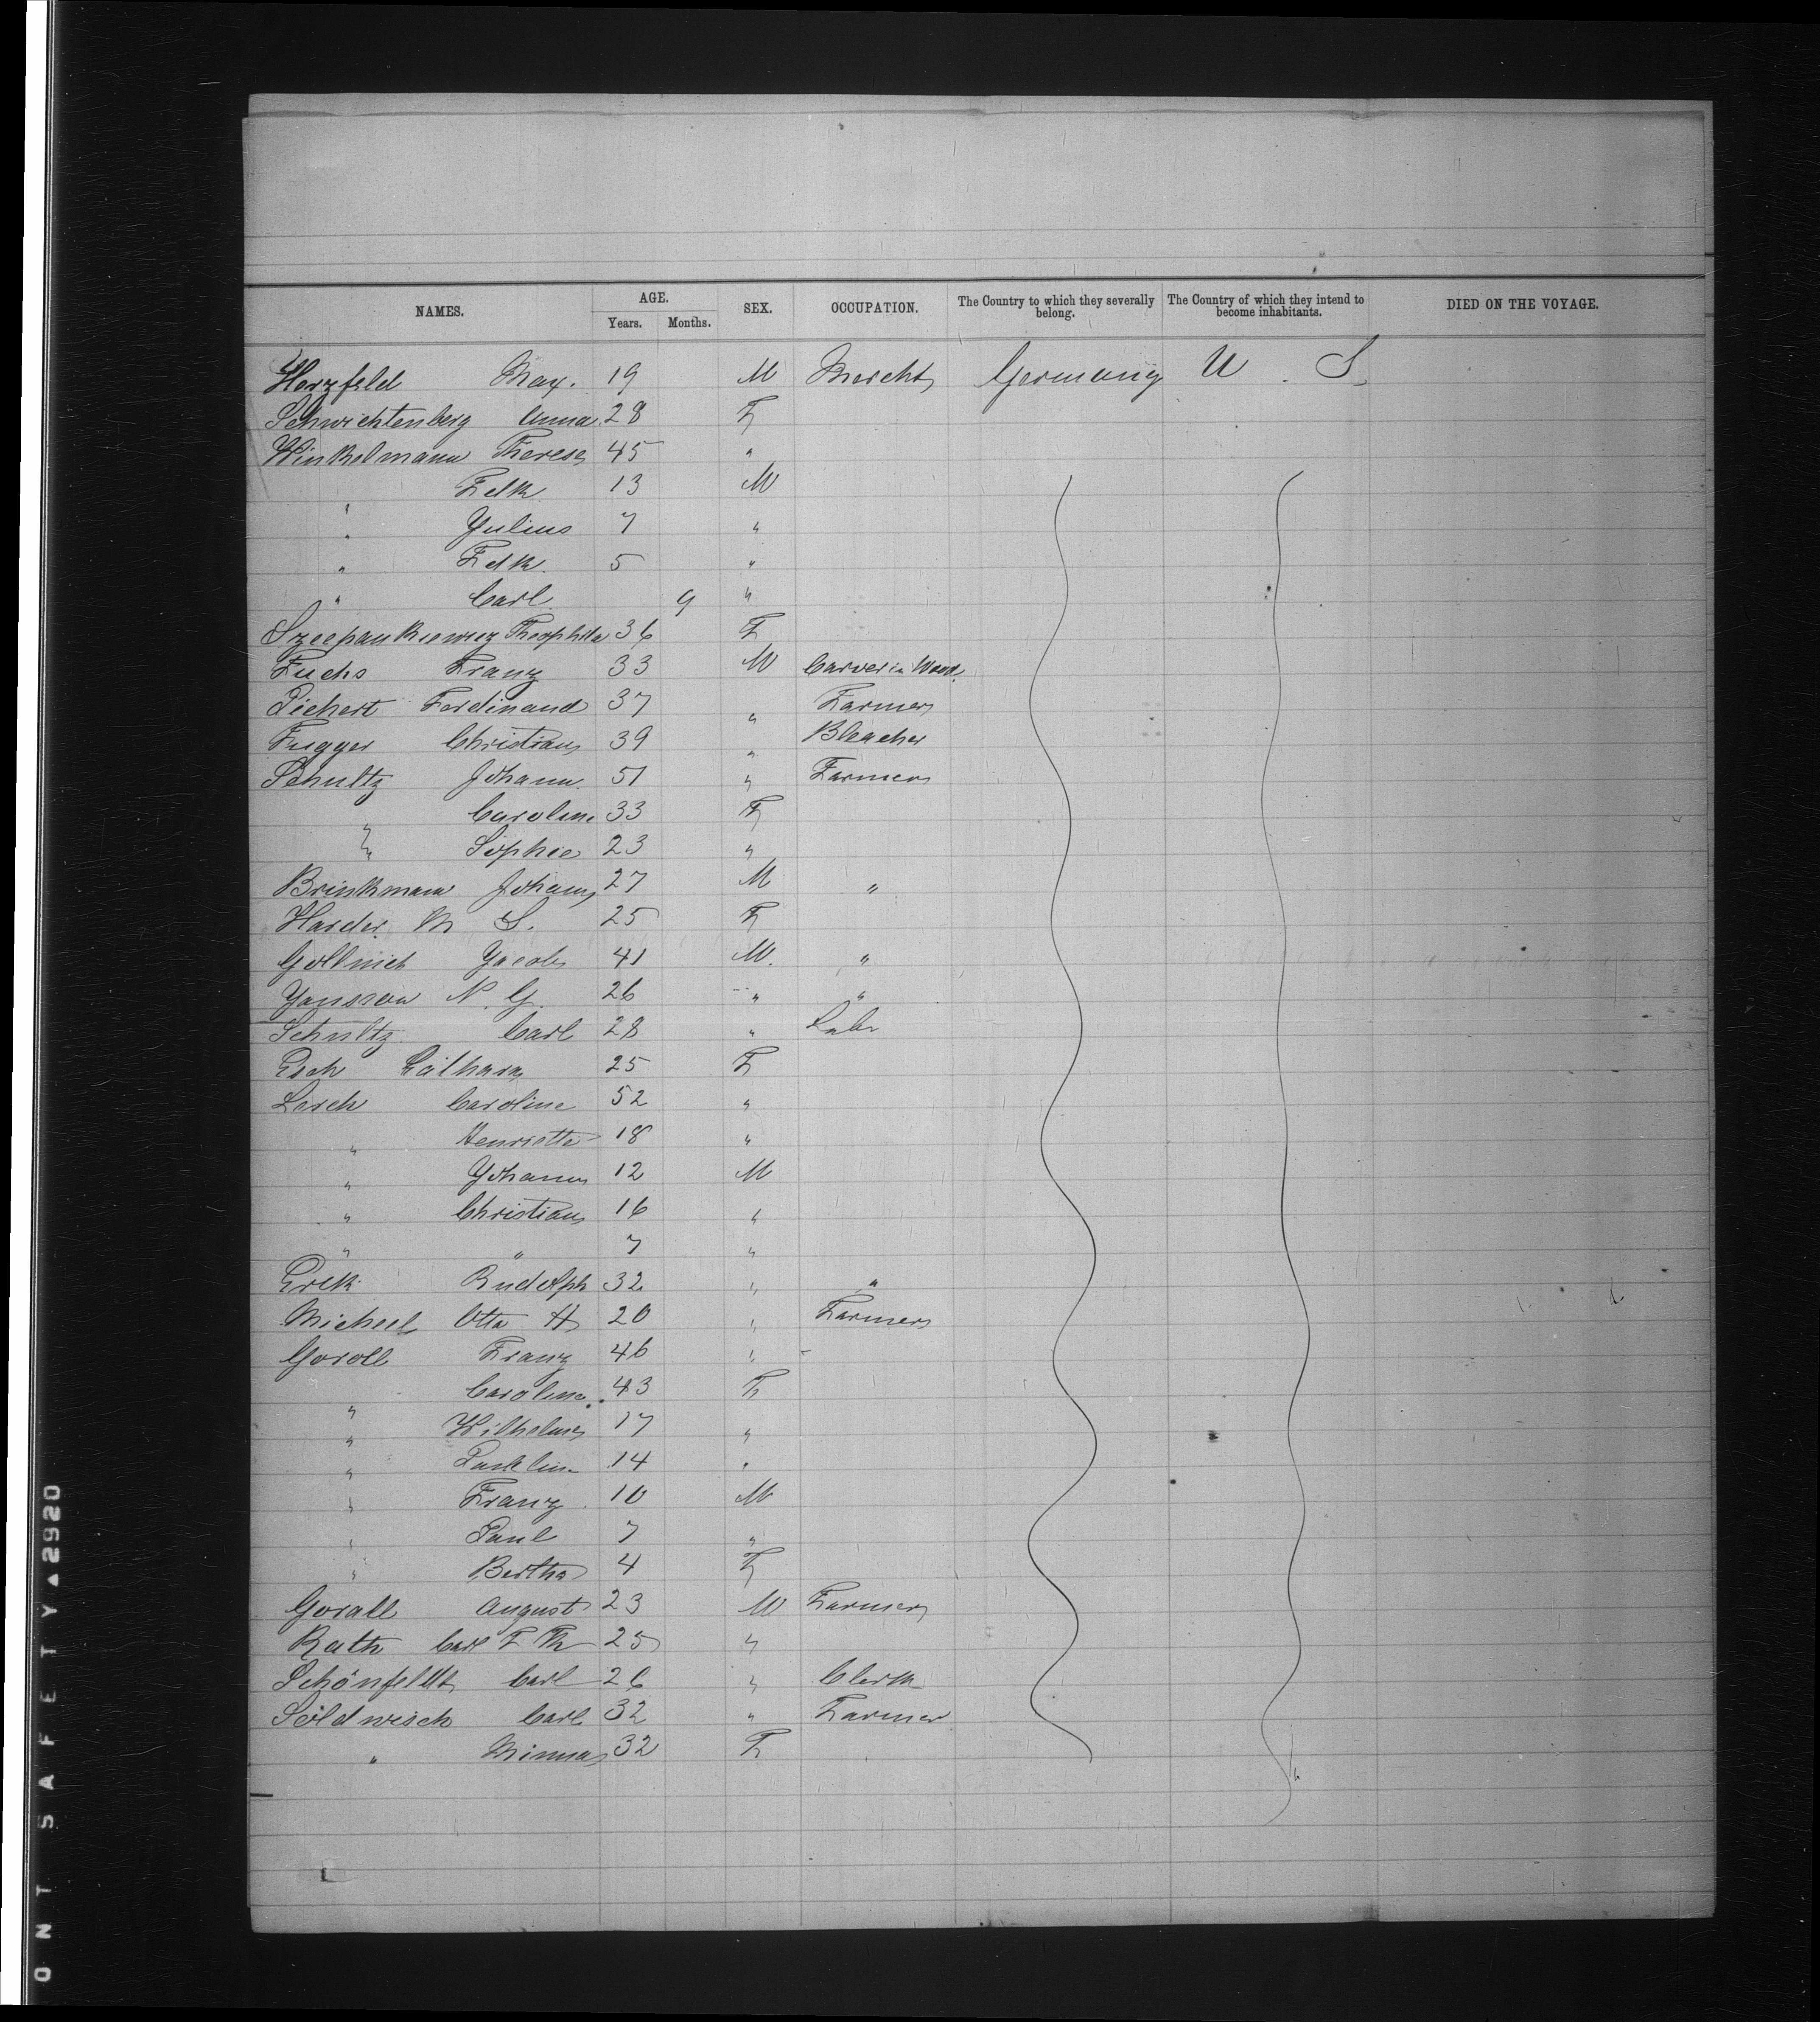 NAMES. AGE. SEX. OCCUPATION. The Country to which they severally belong. The Country of which they intend to become inhabitants. DIED ON THE VOYAGE.
Years. Months.
Herzfeld Max. 19 M Mercht Germany U. S.
Schwichtenberg Anna 28 F
Winkelmann Therese 45 "
" Fdk 13 M
" Julius 7 "
" Fdk. 5 "
" Carl 9 "
Szcepankiewicz Theophila 36 F
Fuchs Franz 33 M Carver in Wood.
Pichert Ferdinand 37 " Farmer
Fugger Christian 39 " Bleacher
Schultz Johann. 51 " Farmer
" Caroline 33 F
" Sophie 23 "
Brinkmann Johann 27 M "
Harder M S. 25 F
Gollnich Jacob 41 M. "
N. G. 26 " "
Schultz Carl 28 " Labr
Esch 25 F
Lerch Caroline 52 "
" Henriette 18 "
" Johann 12 M
" Christian 16 "
" " 7 "
Rudolph 32 " "
Micheel Otto H 20 " Farmer
Goroll Franz 46 "
" Caroline. 43 F
" Wilhelm 17 "
" 14 "
" Franz 10 M
" Paul 7 "
" Bertha 4 F
Gorall August 23 M Farmer
Rath Carl F Th 25 "
Schönfeldt Carl 26 " Clerk
Söldwisch Carl 32 " Farmer
" Minna 32 F
ONT SAFETY▲2920